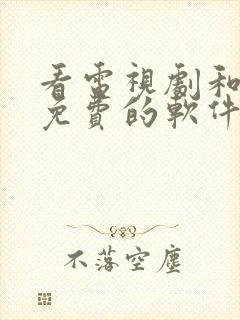 看電視劇和
免費的軟件
不落空塵